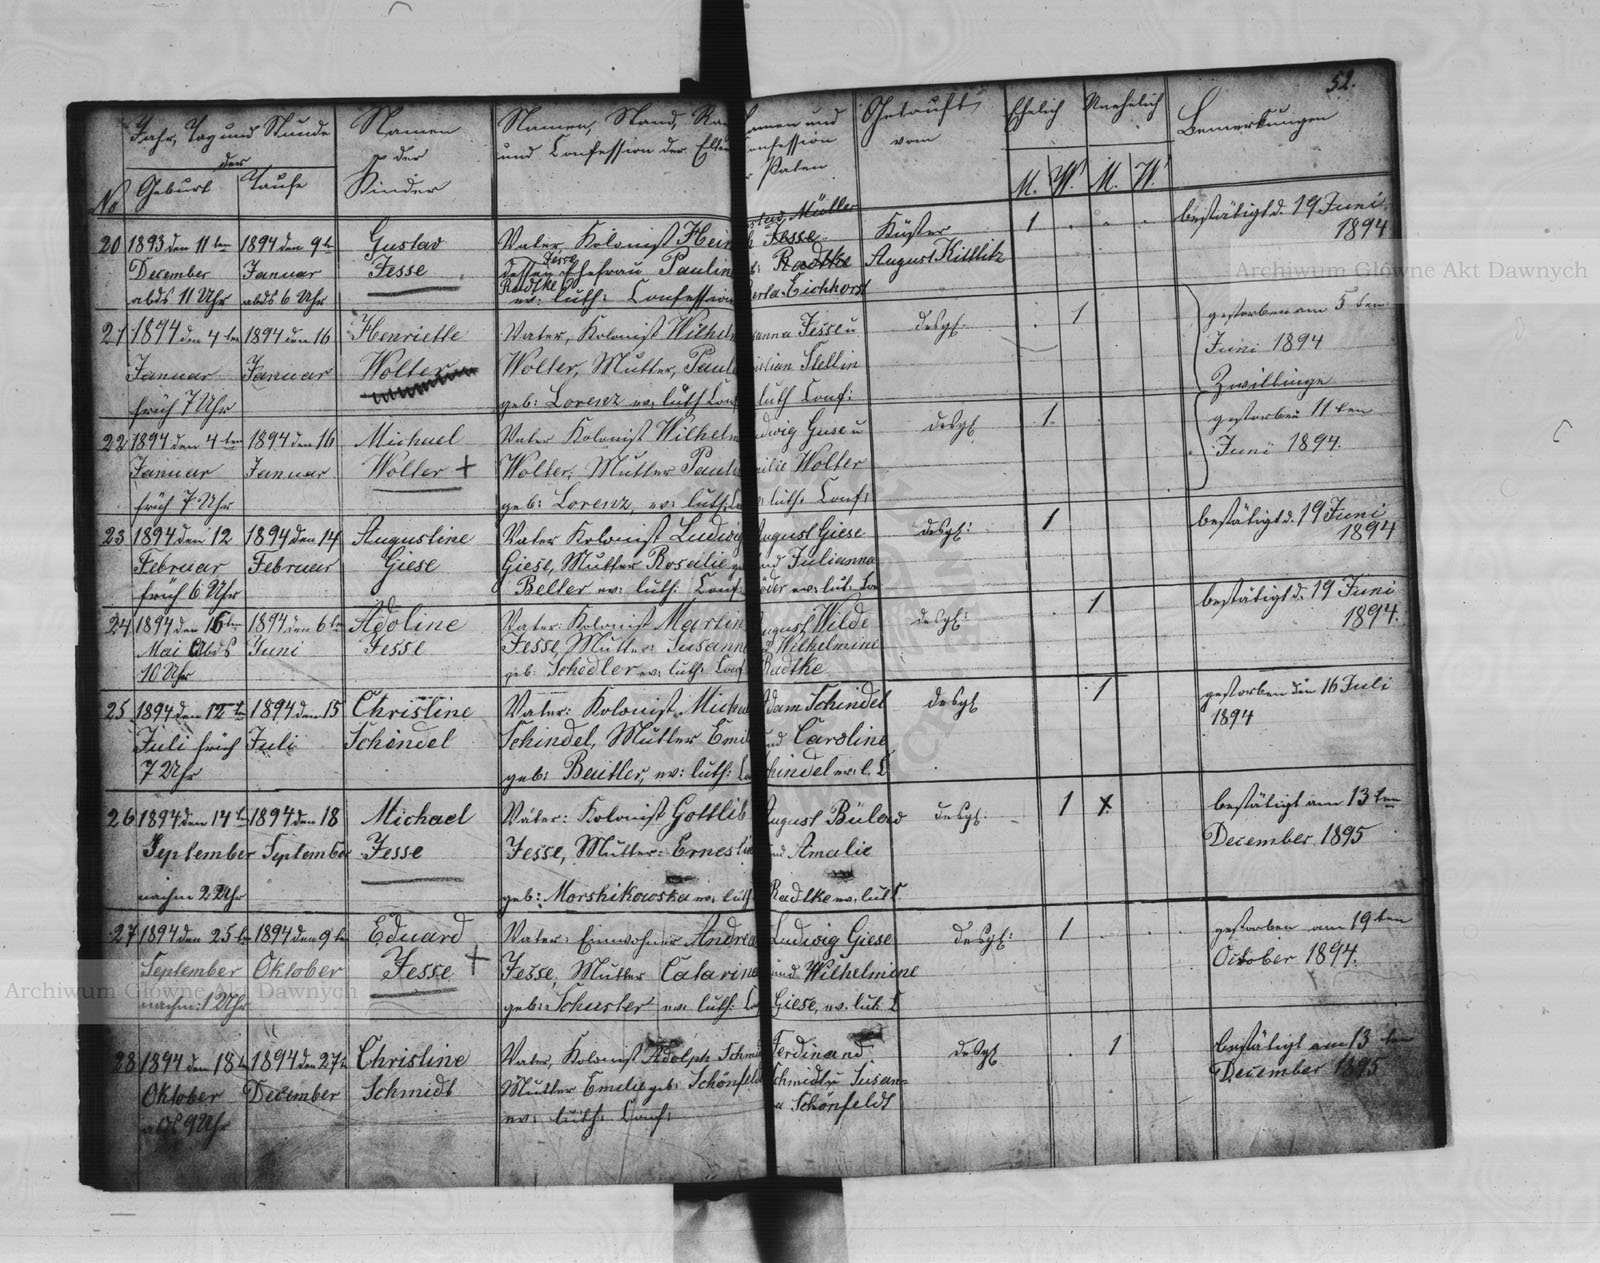 52.
Jahr, Tag und Stunde
der
No
Geburt
Taufe
Namen
der
Kinder
Namen, Stand,
und Confession der Eltern
Namen und
Confession
Paten
Getauft
vom
Ehelich
Unehelich
M. W. M. W.
Bemerkungen
20
1893 den 11ten
December
abds 11 Uhr
1894 den 9te
Januar
abds 6 Uhr
Gustav
Jesse
Vater, Kolonist Hein
dessen Ehefrau Paulin
Jesse
Radtke
ev: luth: Confession
Müller
Jesse
Radtke
Eichhorst
Küster
August Kittlitz
1
bestätigt d. 19 Juni
1894
21
1894 den 4ten
Januar
früh 7 Uhr
1894 den 16
Januar
Henriette
Wolter
Vater, Kolonist Wilhelm
Wolter, Mutter, Paul
geb: Lorenz ev: luth Conf
anna Jesse u
Stellin
luth Conf:
desgl.
1
gestorben am 5ten
Juni 1894
Zwillinge
22
1894 den 4ten
Januar
früh 7 Uhr
1894 den 16
Januar
Michael
Wolter +
Vater Kolonist Wilhelm
Wolter, Mutter Paul
geb: Lorenz, ev: luth:
dwig Guse u
ilie Wolter
luth: Conf:
desgl.
1
gestorben 11ten
Juni 1894.
23
1894 den 12
Februar
früh 6 Uhr
1894 den 14
Februar
Augustine
Giese
Vater Kolonist Ludwig
Giese, Mutter Rosalie
Belter ev: luth: Conf
August Giese
und Julianna
ev: lut:
desgl:
1
bestätigt d. 19 Juni
1894
24
1894 den 16ten
Mai Abds
10 Uhr
1894 den 6ten
Juni
Adoline
Jesse
Vater: Kolonist Martin
Jesse, Mutter: Susanna
geb: Schedler ev: luth: Conf
August Wilde
Wilhelmine
Radtke
desgl:
1
bestätigt d. 19 Juni
1894.
25
1894 den 12te
Juli früh
7 Uhr
1894 den 15
Juli
Christine
Schindel
Vater: Kolonist Micha
Schindel, Mutter Emil
geb: Beutler, ev: luth:
Adam Schindel
und Caroline
Schindel ev: l. C
desgl
1
gestorben den 16 Juli
1894
26
1894 den 14t
September
nachm 2 Uhr
1894 den 18
September
Michael
Jesse
Vater: Kolonist Gottlib
Jesse, Mutter: Ernestin
geb: Morshikowska ev: luth
August Bülow
und Amalie
Radtke ev: lut C
desgl.
1 x
bestätigt am 13ten
December 1895
27
1894 den 25te
September
nachm: 1 Uhr
1894 den 9te
Oktober
Eduard
Jesse +
Vater: Einwohner Andrea
Jesse, Mutter Catarine
geb: Schuster ev: luth:
Ludwig Giese
und Wilhelmine
Giese, ev. lut: C
desgl:
1
gestorben am 19ten
October 1894.
28
1894 den 18te
Oktober
abds 9 Uhr
1894 den 27t
December
Christine
Schmidt
Vater, Kolonist Adolph Schmid
Mutter Emilie geb: Schönfeld
ev: luth: Conf:
Ferdinand
Schmidt u Susan=
a Schönfeldt
desgl
1
bestätigt am 13ten
December 1895
Archiwum Główne Akt Dawnych
Archiwum Główne Akt Dawnych